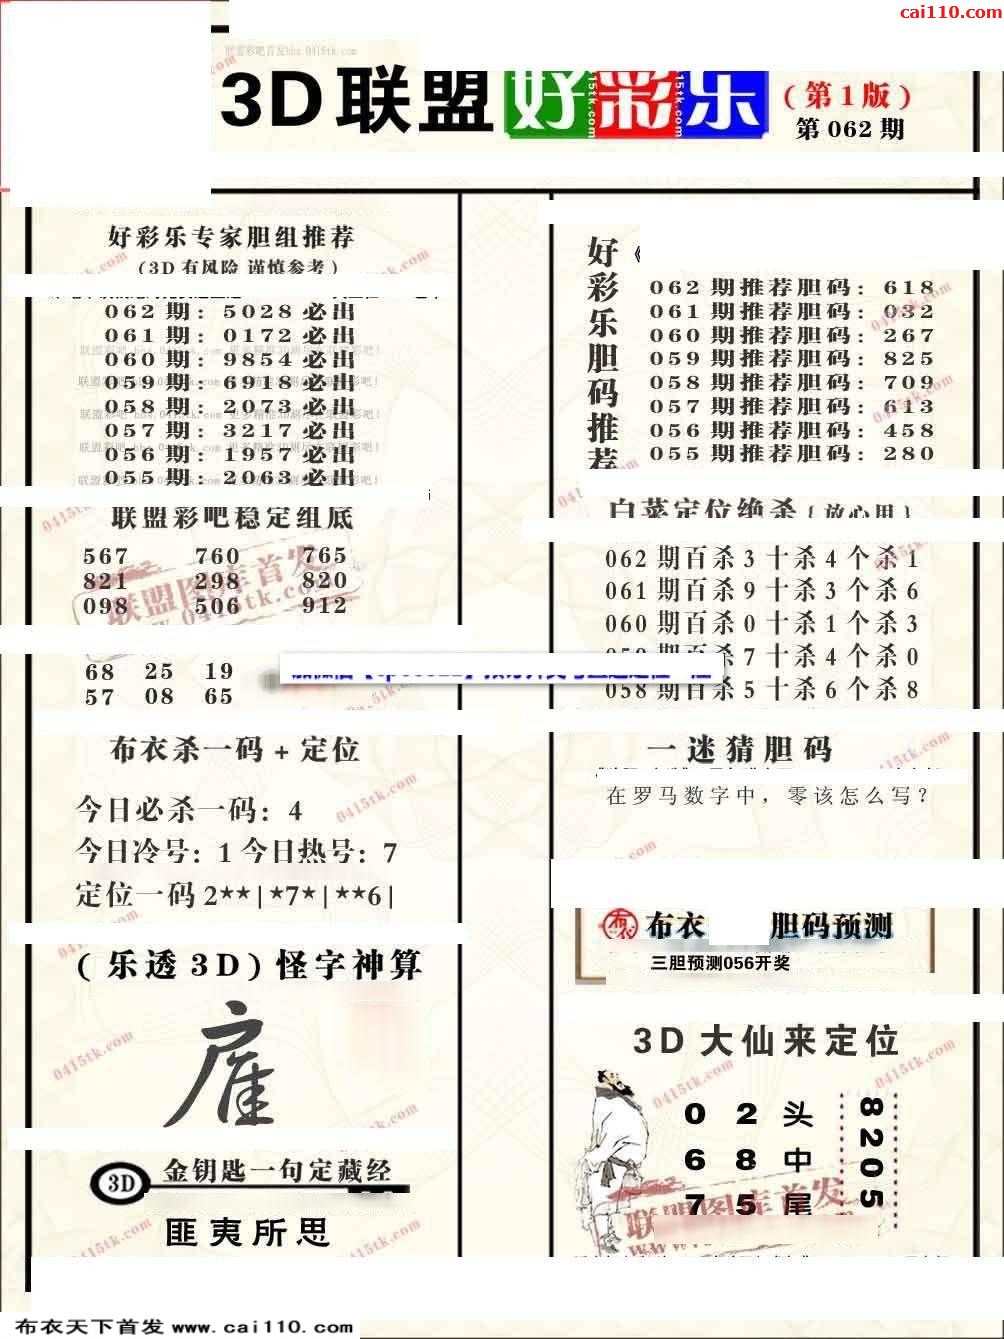 cai110.com
联盟彩吧首发bbs.0415tk.com
3D联盟好彩乐
(第1版)
第062期
好彩乐专家胆组推荐
(3D有风险 谨慎参考)
062期: 5028必出
061期: 0172必出
060期: 9854必出
059期: 6918必出
058期: 2073必出
057期: 3217必出
056期: 1957必出
055期: 2063必出
联盟彩吧稳定组底
567 760 765
821 298 820
098 506 912
联盟图库首发
68 25 19
57 08 65
布衣杀一码+定位
今日必杀一码: 4
今日冷号: 1 今日热号: 7
定位一码 2**|*7*|**6|
(乐透3D)怪字神算
3D
金钥匙一句定藏经
匪夷所思
好彩乐胆码推荐
062期推荐胆码: 618
061期推荐胆码: 032
060期推荐胆码: 267
059期推荐胆码: 825
058期推荐胆码: 709
057期推荐胆码: 613
056期推荐胆码: 458
055期推荐胆码: 280
白菜定位绝杀{放心用}
062期百杀3十杀4个杀1
061期百杀9十杀3个杀6
060期百杀0十杀1个杀3
杀7十杀4个杀0
058期百杀5十杀6个杀8
一迷猜胆码
在罗马数字中，零该怎么写？
布衣 胆码预测
三胆预测056开奖
3D大仙来定位
0 2头
6 8中
7 5尾
8205
联盟图库首发
布衣天下首发 www.cai110.com